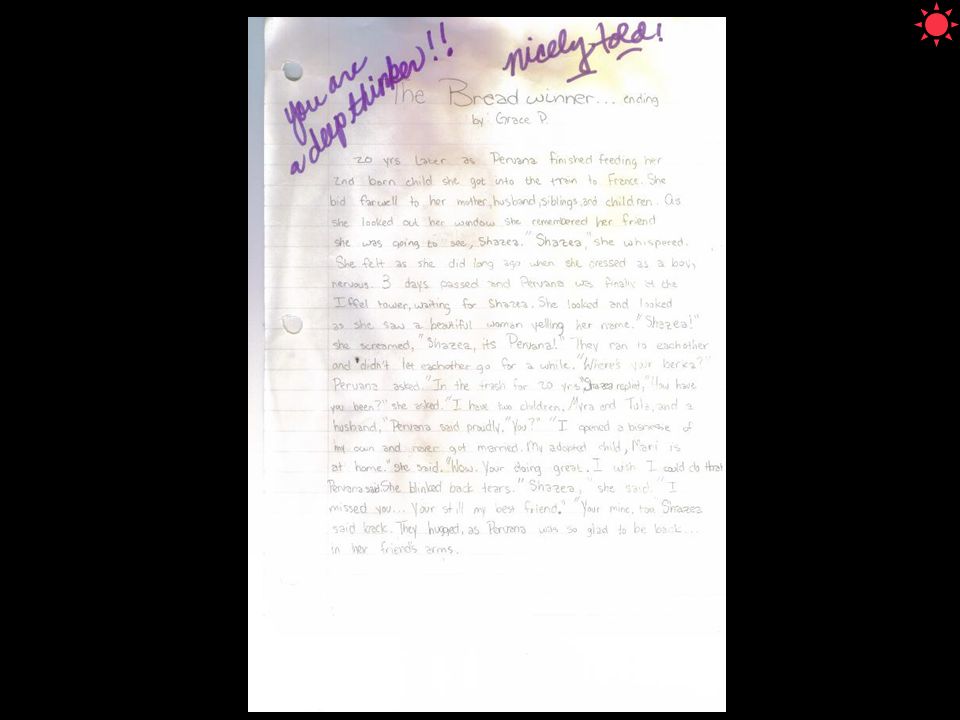 you are
a deep thinker!!
nicely told!
The Bread winner... ending
by: Grace P.
20 yrs later as Pervana finished feeding her
2nd born child she got into the train to France. She
bid farwell to her mother, husband, siblings, and children. as
she looked out her window she remembered her friend
she was going to see, Shazea. "Shazea," she whispered.
She felt as she did long ago when she dressed as a boy,
nervous. 3 days passed and Pervana was finally at the
Iffel tower, waiting for Shazea. She looked and looked
as she saw a beautiful woman yelling her name. "Shazea!"
she screamed, "Shazea, its Pervana!" They ran to eachother
and didn't let eachother go for a while. "Where's your berka?"
Pervana asked. "In the trash for 20 yrs," Shazea replied, "How have
you been?" she asked. "I have two children, Myra and Tula, and a
husband," Pervana said proudly. "You?" "I opened a bisnesse of
my own and never got married. My adopted child, Mari is
at home." she said. "Wow. Your doing great. I wish I could do that
Pervana said. She blinked back tears. "Shazea," she said. "I
missed you... Your still my best friend." "Your mine, too," Shazea
said back. They hugged, as Pervana was so glad to be back...
in her friend's arms.